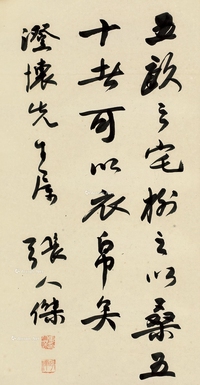 五畝之宅樹之以桑五
十者可以衣帛矣
澄懷先生屬 張人傑